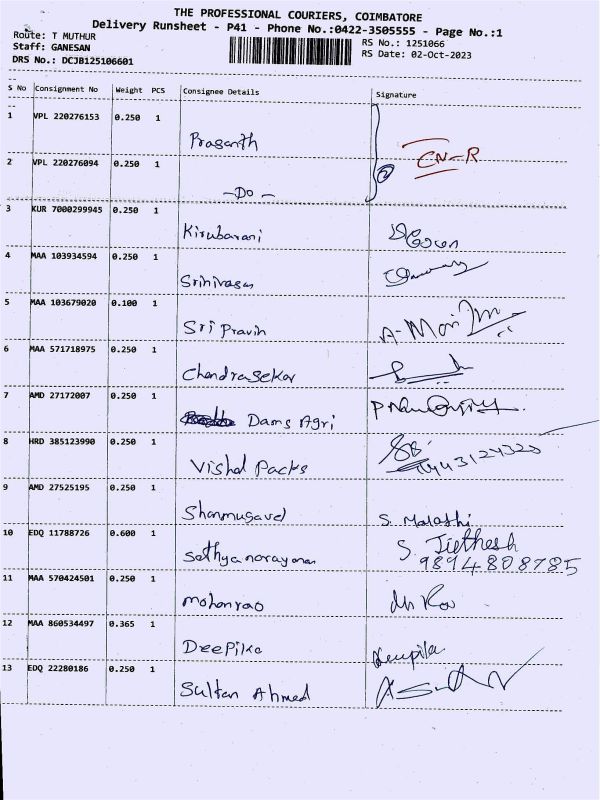 THE PROFESSIONAL COURIERS, COIMBATORE
Delivery Runsheet - P41 - Phone No.:0422-3505555 - Page No.:1
Route: T MUTHUR
RS No.: 1251066
Staff: GANESAN
RS Date: 02-Oct-2023
DRS No.: DCJB125106601
S No Consignment No Weight PCS Consignee Details Signature
1 VPL 220276153 0.250 1
Prasanth
CN-R
2 VPL 220276094 0.250 1
-Do-
3 KUR 7000299945 0.250 1
Kirubarani
4 MAA 103934594 0.250 1
Srinivasan
5 MAA 103679020 0.100 1
Sri Pravin A-Mani
6 MAA 571718975 0.250 1
Chandrasekar
7 AMD 27172007 0.250 1
Dams Agri
8 HRD 385123990 0.250 1
Vishal Packs
9 AMD 27525195 0.250 1
Shanmugavel S. Malathi
10 EDQ 11788726 0.600 1
Sathyanarayanan S. Jiethesh
9894808785
11 MAA 570424501 0.250 1
Mohanrao
12 MAA 860534497 0.365 1
Deepika Deepika
13 EDQ 22280186 0.250 1
Sultan Ahmed